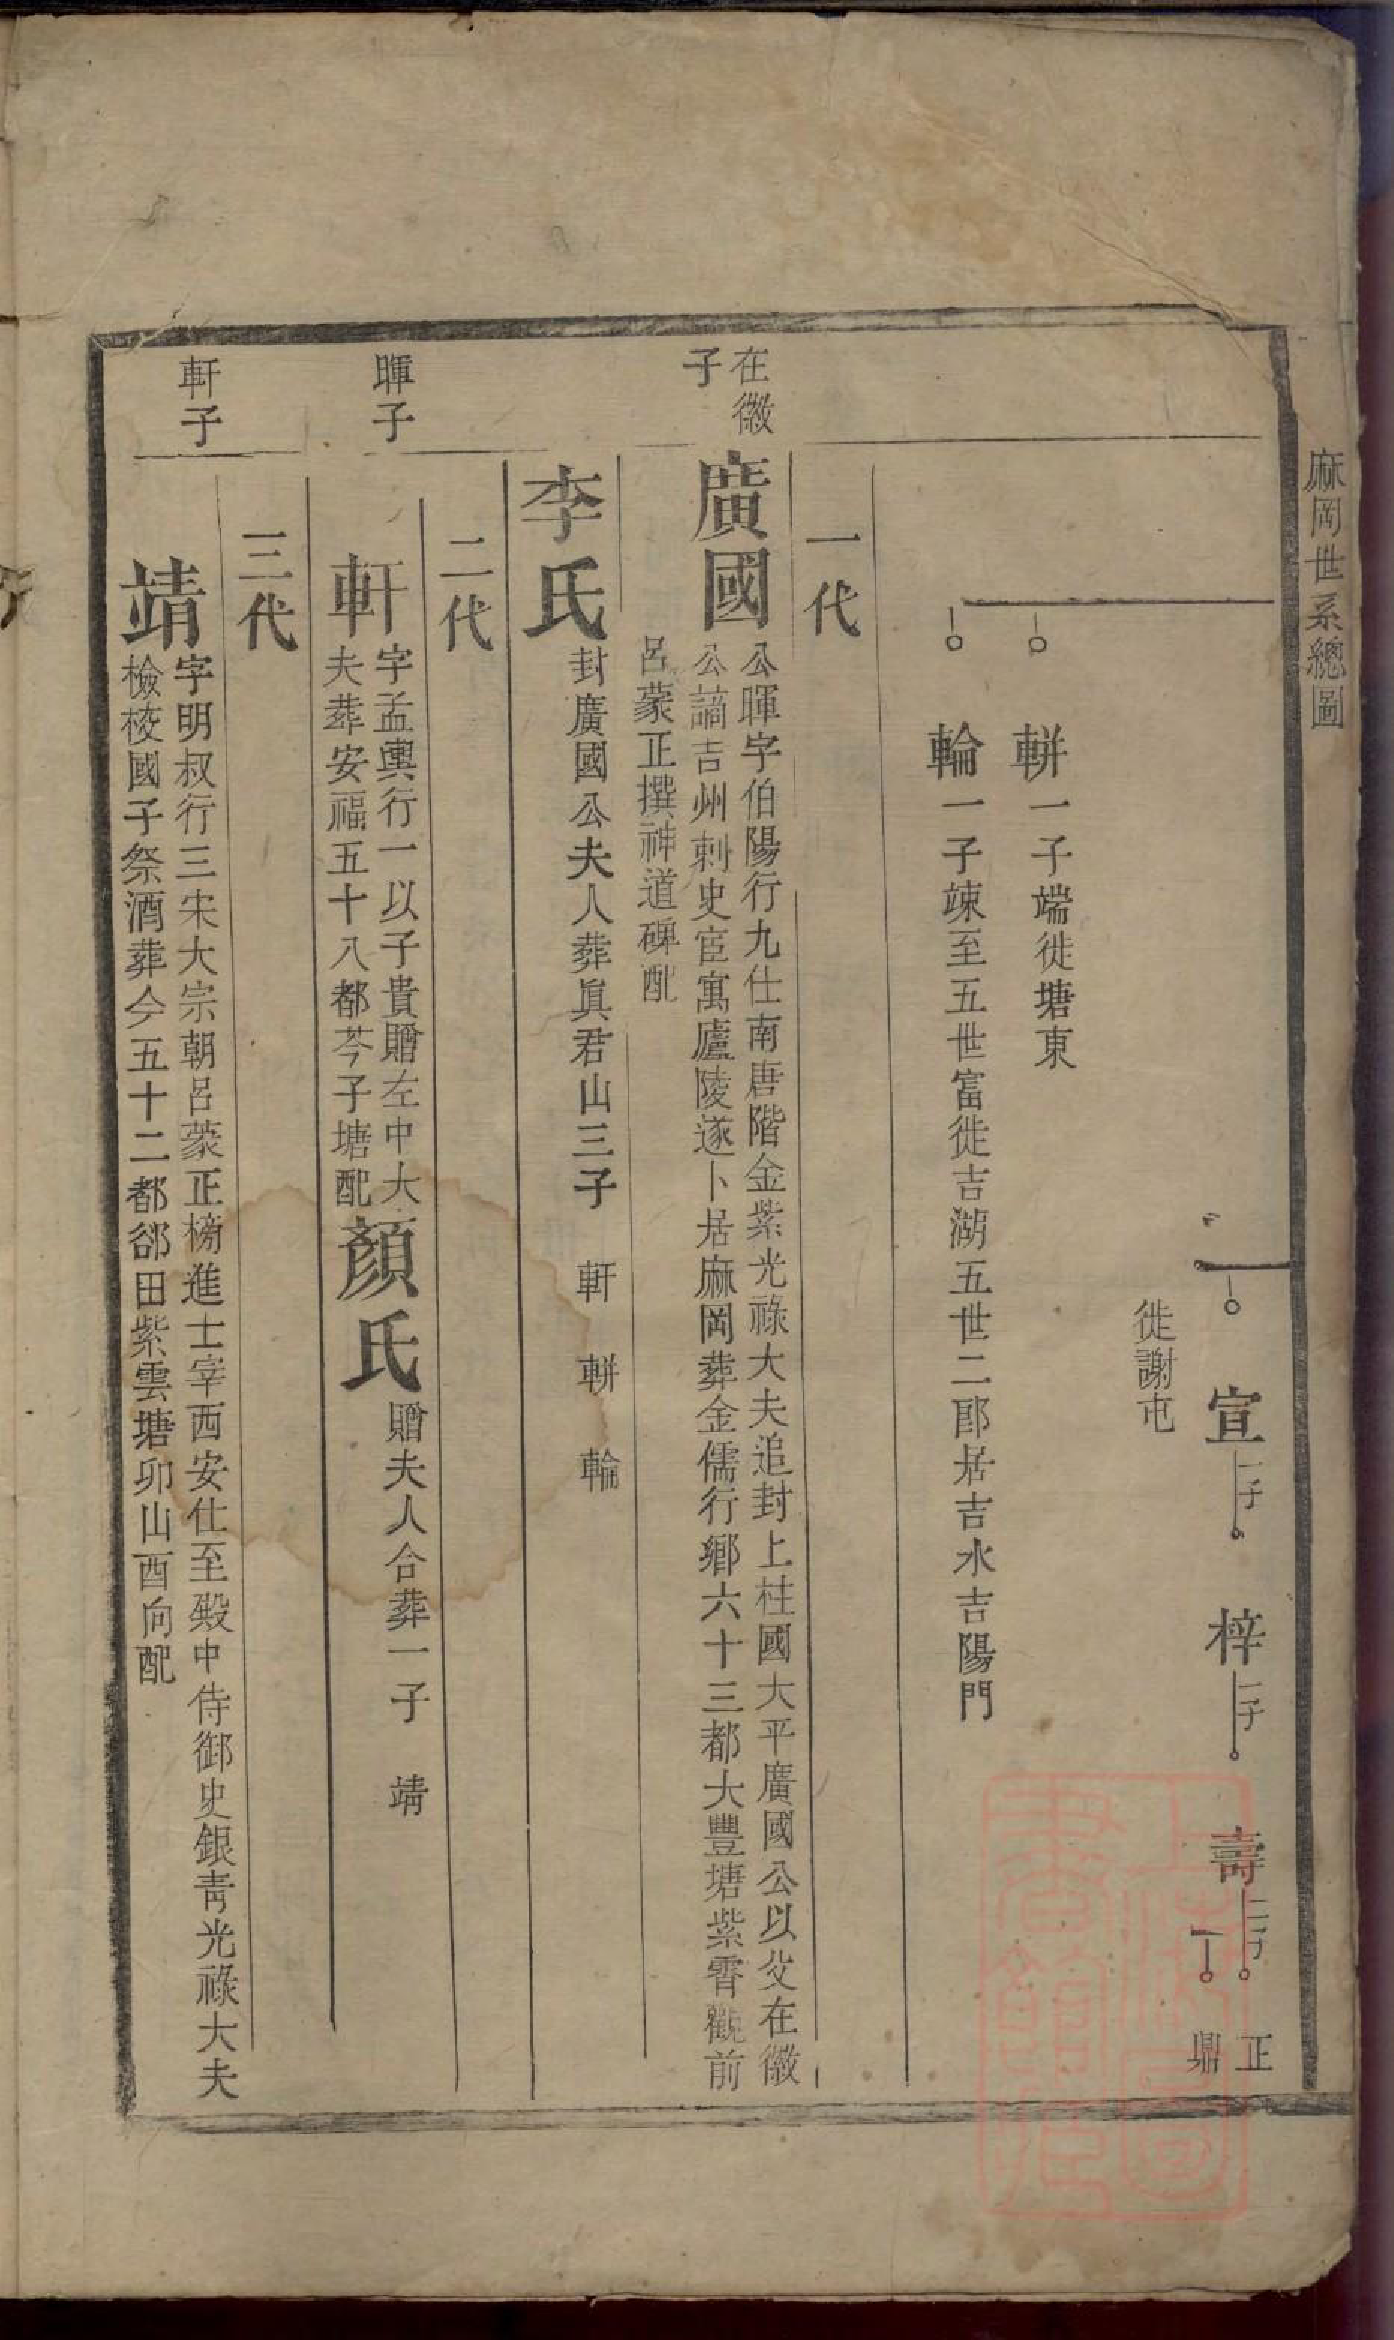 麻岡世系總圖
宣 一子 梓 一子 壽 二子 正
鼎
徙謝屯
軿 一子端徙塘東
輪 一子竦至五世富徙吉湖五世二郎居吉水吉陽門
一代
在徽
子
廣國 公暉字伯陽行九仕南唐階金紫光祿大夫追封上柱國大平廣國公以父在徽
公謫吉州刺史宦寓廬陵遂卜居麻岡葬金儒行鄉六十三都大豐塘紫霄觀前
呂蒙正撰神道碑配
李氏 封廣國公夫人葬眞君山三子 軒 軿 輪
二代
暉子
軒 字孟輿行一以子貴贈左中大
夫葬安福五十八都芩子塘配
顏氏 贈夫人合葬一子 靖
三代
軒子
靖 字明叔行三宋大宗朝呂蒙正榜進士宰西安仕至殿中侍御史銀靑光祿大夫
檢校國子祭酒葬今五十二都郤田紫雲塘卯山酉向配
上海圖書館藏